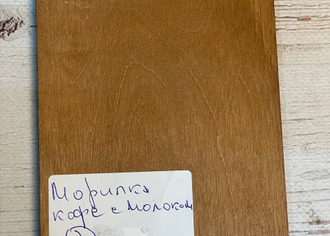 Морилка
кофе с молоком